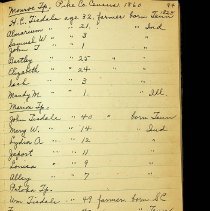 Monroe Tp. Pike Co Census 1860 94
H.C. Tisdale age 32, farmer born Tenn
" 21, " Ind
Samuel W " 3 "
John T " 1
Bartley " 25 "
Elizabeth " 24 "
Zach " 3 "
Mandy M. " 1 " Ill.
Marion Tp.
John Tisdale " 40 " born Tenn
Mary W. " " 14 " Ind
Lydia A " 12 "
" 11 "
Louisa " 9 "
Alley " 7 "
Patoka Tp.
Wm Tisdale " 49 farmer born S.C.